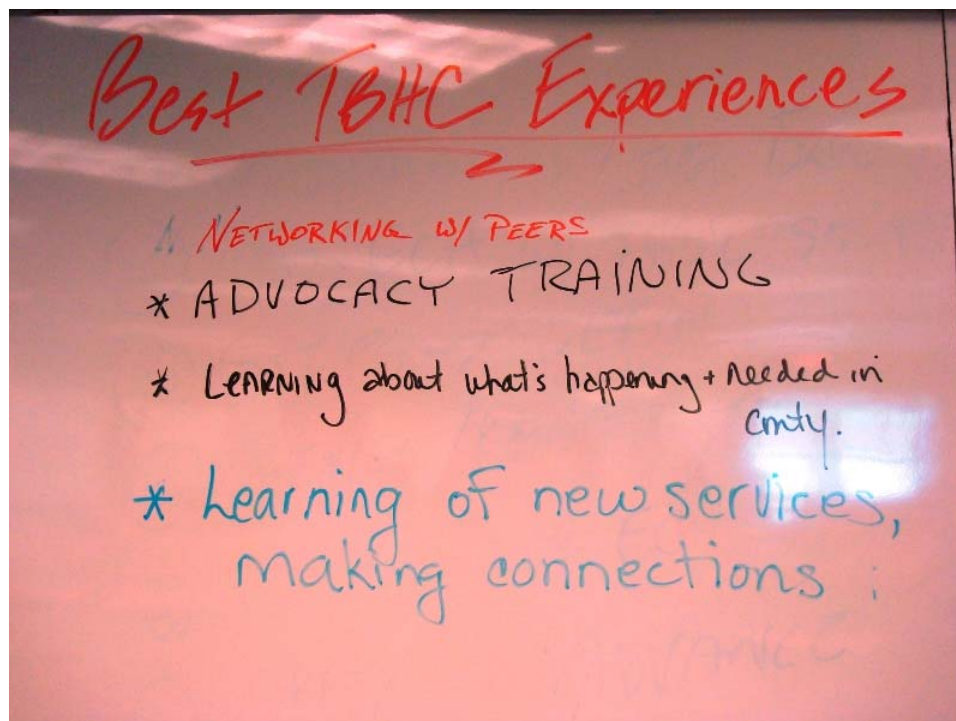 Best TBHC Experiences
NETWORKING W/ PEERS
* ADVOCACY TRAINING
* LEARNING about what's happening + needed in
cmty.
* Learning of new services,
making connections